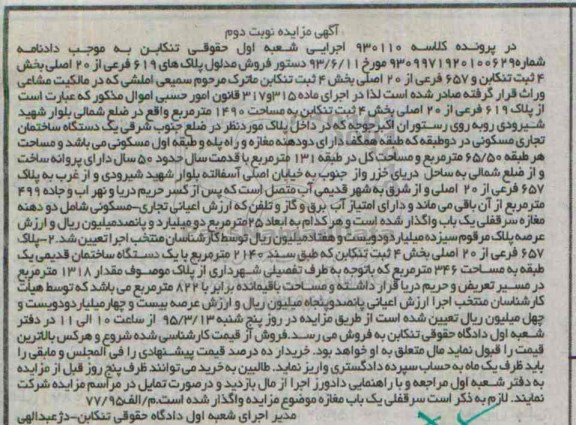 آگهی مزایده نوبت دوم
در پرونده کلاسه ۹۳۰۱۱۰ اجرایی شعبه اول حقوقی تنکابن به موجب دادنامه
شماره ۹۳۰۹۹۷۱۹۲۰۱۰۰۶۲۹ مورخ ۹۳/۶/۱۱ دستور فروش مدلول پلاک های ۶۱۹ فرعی از ۲۰ اصلی بخش
۴ ثبت تنکابن و ۶۵۷ فرعی از ۲۰ اصلی بخش ۴ ثبت تنکابن ماترک مرحوم سمیعی املشی که در مالکیت مشاعی
وراث قرار گرفته صادر شده است لذا در اجرای ماده ۳۱۵و۳۱۷ قانون امور حسبی اموال مذکور که عبارت است
از پلاک ۶۱۹ فرعی از ۲۰ اصلی بخش ۴ ثبت تنکابن به مساحت ۱۴۹۰ مترمربع واقع در ضلع شمالی بلوار شهید
شیرودی روبه روی رستوران اکبرجوجه که در داخل پلاک موردنظر در ضلع جنوب شرقی یک دستگاه ساختمان
تجاری مسکونی در دوطبقه که طبقه همکف دارای دودهنه مغازه و راه پله و طبقه اول مسکونی می باشد و مساحت
هر طبقه ۶۵/۵۰ مترمربع و مساحت کل در طبقه ۱۳۱ مترمربع با قدمت سال حدود ۵۰ سال دارای پروانه ساخت
و از ضلع شمالی به ساحل دریای خزر و از جنوب به خیابان اصلی آسفالته بلوار شهید شیرودی و از غرب به پلاک
۶۵۷ فرعی از ۲۰ اصلی و از شرق به شهر قدیمی آب متصل است که پس از کسر حریم دریا و نهر اب و جاده ۴۹۹
مترمربع از آن باقی می ماند و دارای امتیاز آب برق و گاز و تلفن که ارزش اعیانی تجاری-مسکونی شامل دو دهنه
مغازه سرقفلی یک باب واگذار شده است و هر کدام به ابعاد ۲۵مترمربع دو میلیارد و پانصدمیلیون ریال و ارزش
عرصه پلاک مرقوم سیزده میلیارد دویست و هفتاد میلیون ریال توسط کارشناسان منتخب اجرا تعیین شد.۲-پلاک
۶۵۷ فرعی از ۲۰ اصلی بخش ۴ ثبت تنکابن که طبق سند ۲۱۴۰ مترمربع با یک دستگاه ساختمان قدیمی یک
طبقه به مساحت ۳۴۶ مترمربع که باتوجه به طرف تفصیلی شهرداری از پلاک موصوف مقدار ۱۳۱۸ مترمربع
در مسیر تعریض و حریم دریا قرار داشته و مساحت باقیمانده برابر با ۸۲۲ مترمربع می باشد که توسط هیات
کارشناسان منتخب اجرا ارزش اعیانی پانصدوپنجاه میلیون ریال و ارزش عرصه بیست و چهارمیلیارددویست و
چهل میلیون ریال تعیین شده است از طریق مزایده در روز پنج شنبه ۹۵/۳/۱۳ از ساعت ۱۰ الی ۱۱ در دفتر
شعبه اول دادگاه حقوقی تنکابن به فروش می رسد.فروش از قیمت کارشناسی شده شروع و هرکس بالاترین
قیمت را قبول نماید مال متعلق به او خواهد بود. خریدار ده درصد قیمت پیشنهادی را فی المجلس و مابقی را
باید ظرف یک ماه به حساب سپرده دادگستری واریز نماید. طالبین به خرید می توانند ظرف پنج روز قبل از مزایده
به دفتر شعبه اول مراجعه و با راهنمایی دادورز اجرا از مال بازدید و درصورت تمایل در مراسم مزایده شرکت
نمایند. لازم به ذکر است سرقفلی یک باب مغازه موضوع مزایده واگذار شده است.م/الف۷۷/۹۵
مدیر اجرای شعبه اول دادگاه حقوقی تنکابن-دژعبدالهی